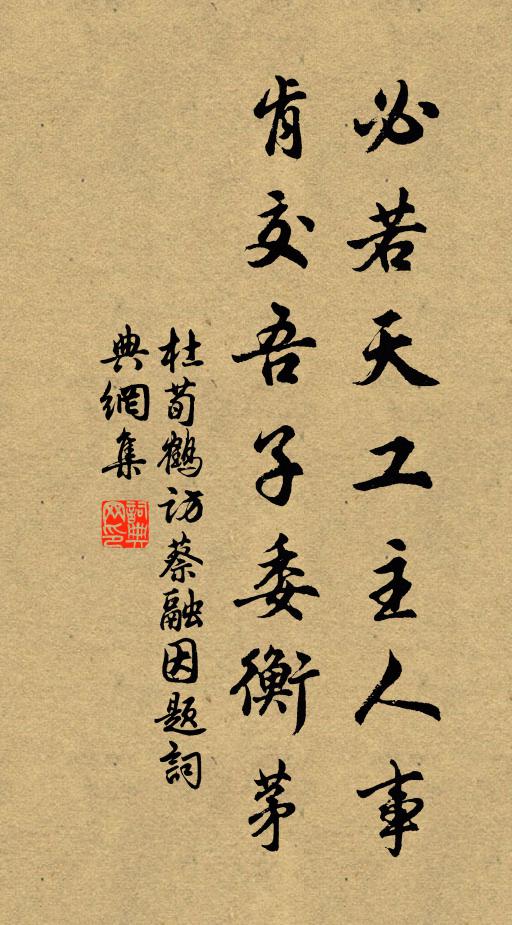 必若天工主人事
肯交吾子委衡茅
杜荀鶴訪蔡融因題詞
典網集
詞典
网印